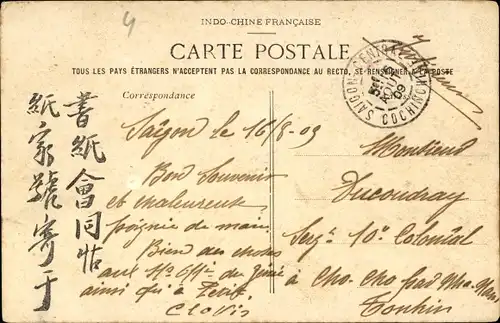 INDO-CHINE FRANÇAISE
CARTE POSTALE
TOUS LES PAYS ÉTRANGERS N'ACCEPTENT PAS LA CORRESPONDANCE AU RECTO, SE RENSEIGNER A LA POSTE
Correspondance
SAIGON-CENTRAL
AOUT
09
COCHINCHINE
書紙會同帖
紙家號寄于
Saïgon le 16/8-09
Bon Souvenir
et chaleureux
poignée de main.
Bien des choses
aux
du Génie
ainsi qu'à Petit.
Clovis
Monsieur
Ducoudray
Sergt 10e Colonial
à Cho-
Tonkin